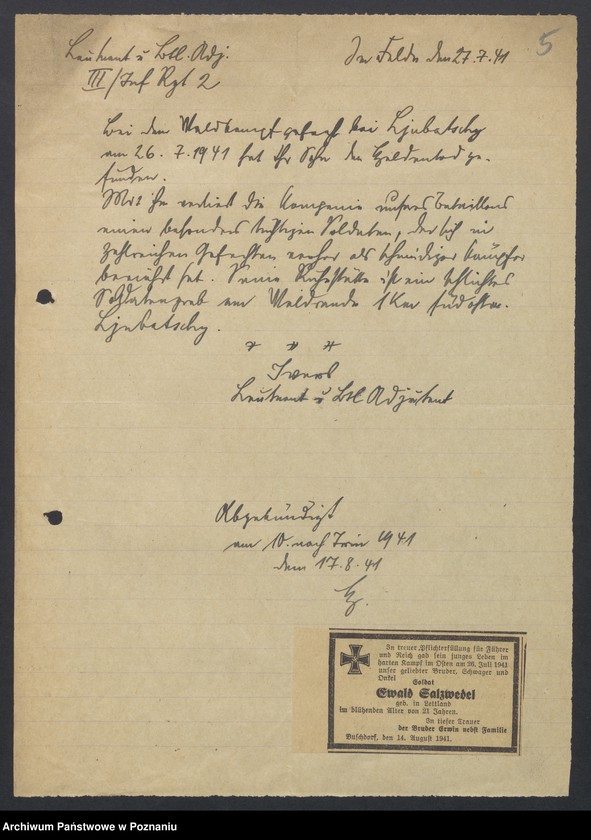 5
Leutnant u Btl. Adj.
III/Inf Rgt 2
Im Felde den 27.7.41
Bei dem Waldkampfgefecht bei Ljubatschy
am 26. 7. 1941 hat Ihr Sohn den Heldentod ge-
funden.
Mit ihm verliert die Kompanie unseres Bataillons
einen besonders tüchtigen Soldaten, der sich in
zahlreichen Gefechten vorher als schneidiger Kämpfer
bewährt hat. Seine Ruhestätte ist ein schlichtes
Soldatengrab am Waldrande 1 Km südostw.
Ljubatschy.
* * *
Ivers
Leutnant u Btl Adjutant
Abgekündigt
am 10. nach Trin 1941
dem 17.8.41
In treuer Pflichterfüllung für Führer
und Reich gab sein junges Leben im
harten Kampf im Osten am 26. Juli 1941
unser geliebter Bruder, Schwager und
Onkel
Soldat
Ewald Salzwedel
geb. in Lettland
im blühenden Alter von 21 Jahren.
In tiefer Trauer
der Bruder Erwin nebst Familie
Buschdorf, den 14. August 1941.
Archiwum Państwowe w Poznaniu